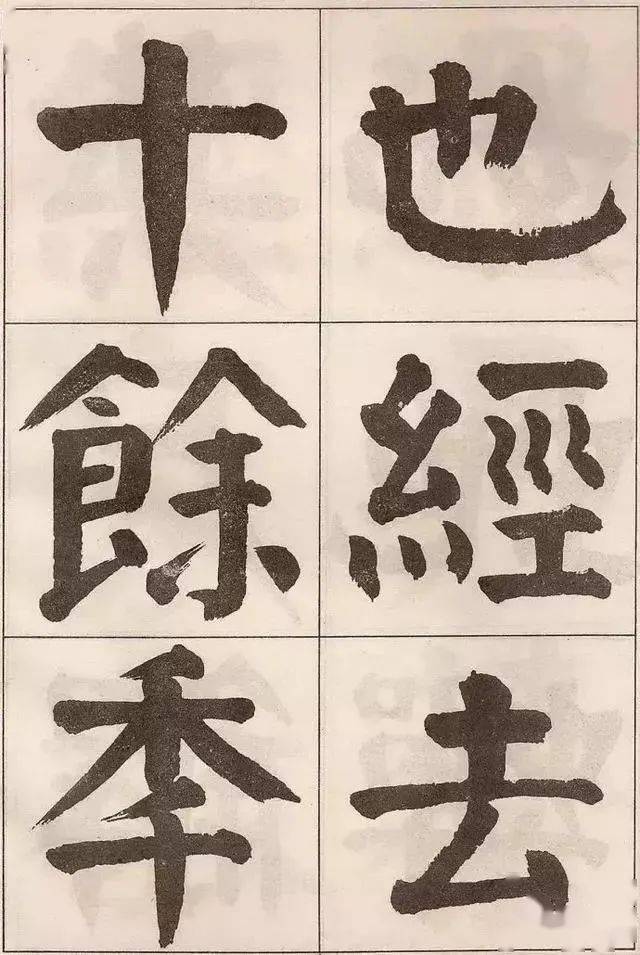 也經去
十餘秊